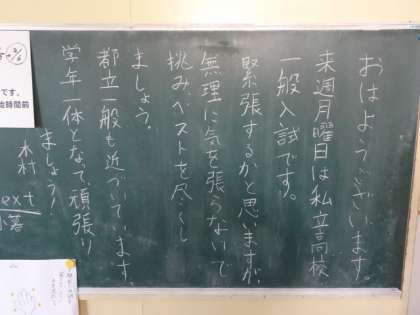 おはようございます。
来週月曜日は私立高校
一般入試です。
緊張するかと思いますが、
無理に気を張らないで
挑みベストを尽くし
ましょう。
都立一般も近づいています。
学年一体となって頑張り
ましょう！
木村
ext
です。
始時間前